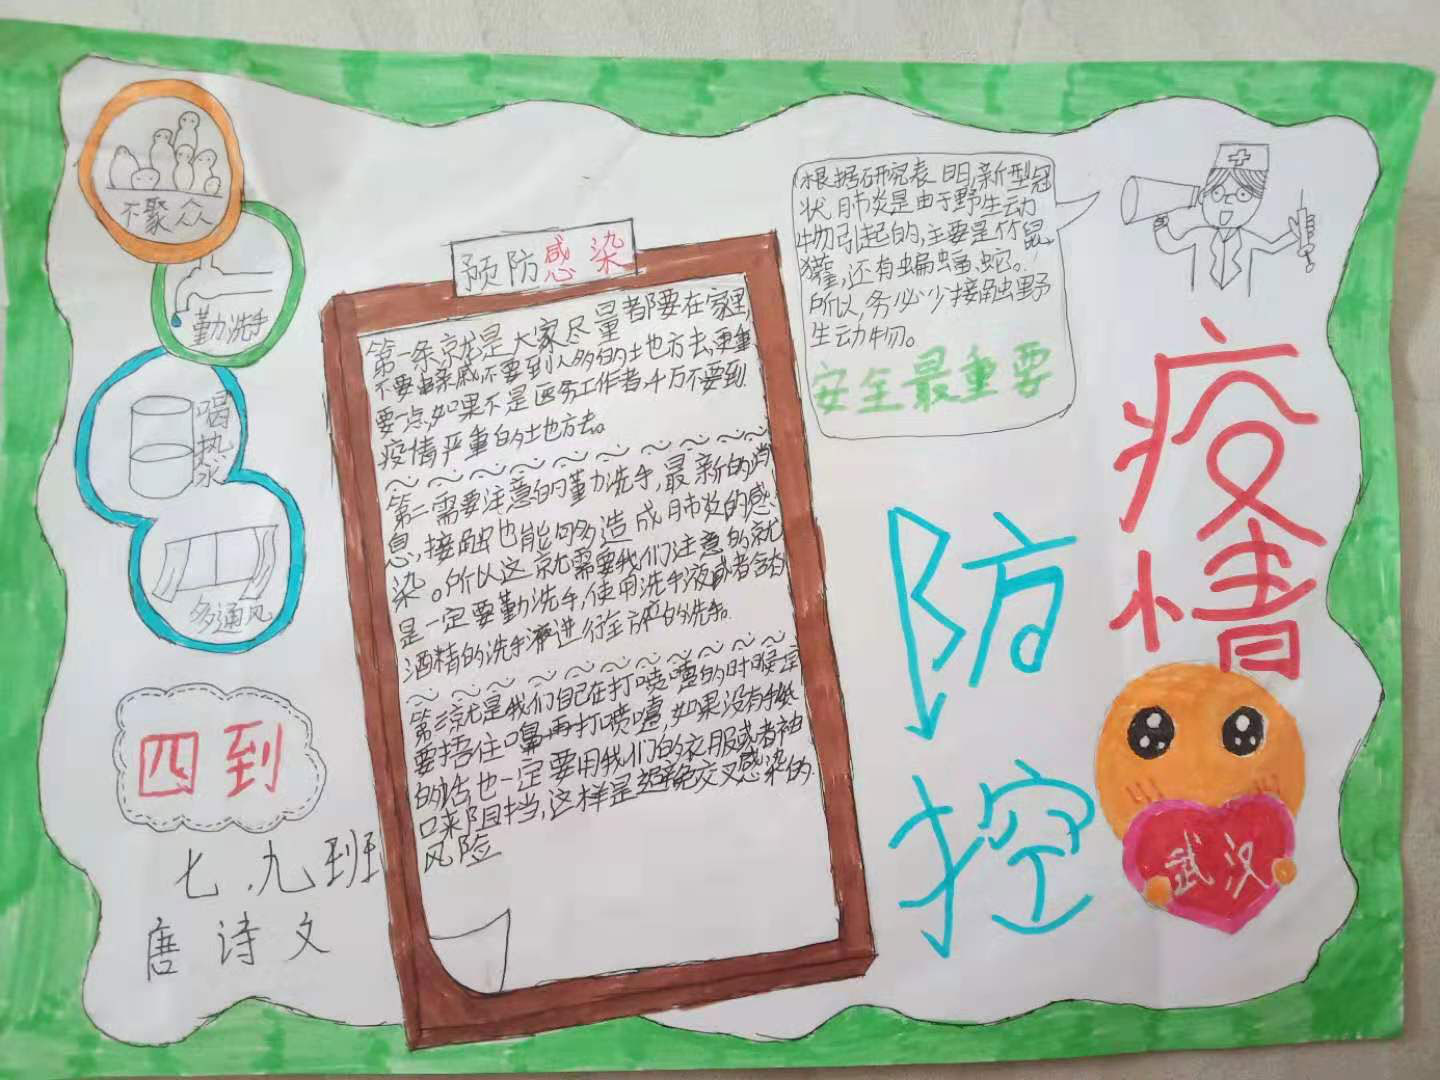 不聚众
勤洗手
喝热水
多通风
四到
七.九班
唐诗文
预防感染
第一条就是大家尽量都要在家里,
不要串亲戚,不要到人多的地方去,更重
要一点,如果不是医务工作者千万不要到
疫情严重的地方去。
第二需要注意的勤洗手,最新的消
息,接触也能够造成肺炎的感
染。所以这就需要我们注意的就
是一定要勤洗手,使用洗手液或者含有
酒精的洗手液进行全方位的洗手。
第三就是我们自己在打喷嚏的时候一定
要捂住口鼻再打喷嚏,如果没有手纸
的话也一定要用我们的衣服或者袖
口来阻挡,这样是避免交叉感染的
风险
根据研究表明,新型冠
状肺炎是由于野生动
物引起的,主要是竹鼠,
獾,还有蝙蝠、蛇。
所以,务必少接触野
生动物。
安全最重要
疫情
防控
武汉